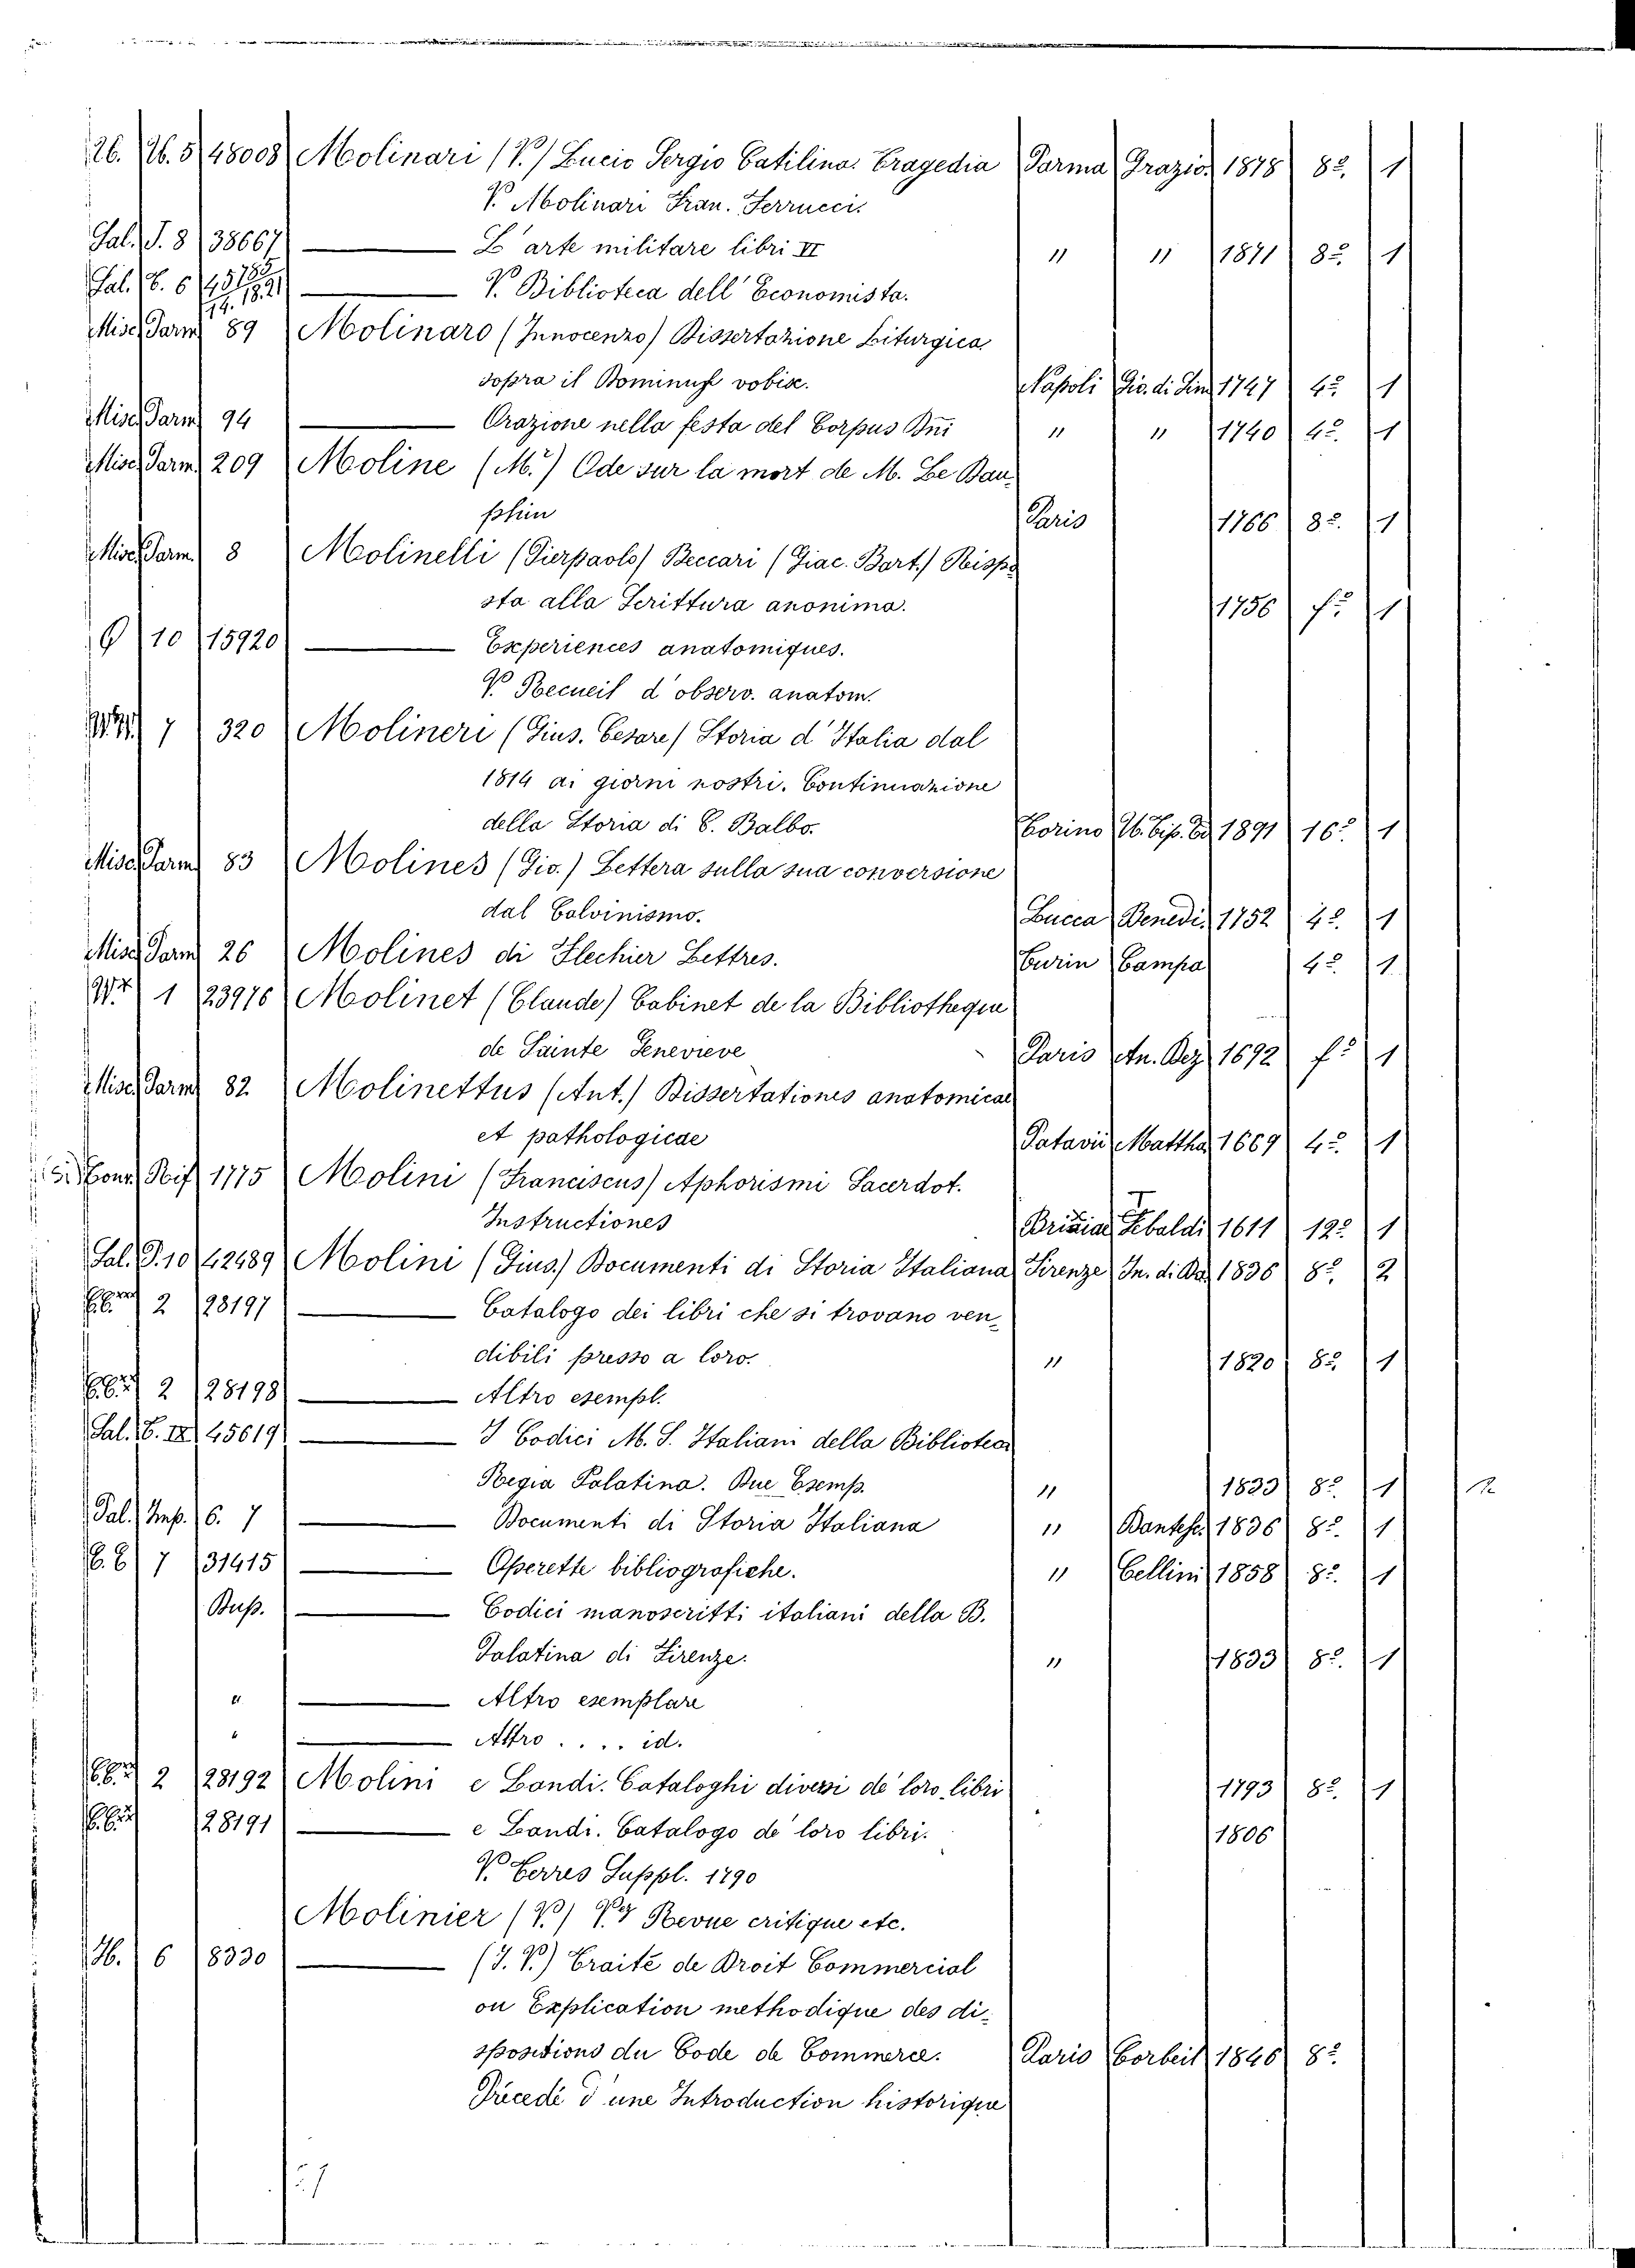 48008 Molinari (V.) Lucio Sergio Catilina. Tragedia Parma Grazio. 1878 8º. 1
V. Molinari Fran. Ferrucci.
Sal. J. 8 38667 L'arte militare libri VI " " 1871 8º. 1
Sal. C. 6 V. Biblioteca dell'Economista.
Misc. Parm. 89 Molinaro (Innocenzo) Dissertazione Liturgica
sopra il Dominus vobisc. Napoli Gio. di Sim. 1747 4º 1
Misc. Parm. 94 Orazione nella festa del Corpus Dni " " 1740 4º. 1
Misc. Parm. 209 Moline (M.r) Ode sur la mort de M. Le Dau-
phin Paris 1766 8º. 1
Misc. Parm. 8 Molinelli (Pierpaolo) Beccari (Giac. Bart.) Rispo
sta alla Scrittura anonima. 1756 fº 1
10 15920 Experiences anatomiques.
V. Recueil d'observ. anatom.
7 320 Molineri (Gius. Cesare) Storia d'Italia dal
1814 ai giorni nostri. Continuazione
della Storia di C. Balbo. Torino U. Tip. Ed. 1891 16º 1
Misc. Parm. 83 Molines (Gio.) Lettera sulla sua conversione
dal Calvinismo. Lucca Benedi. 1752 4º. 1
Misc. Parm. 26 Molines di Flechier Lettres. Turin Campa 4º. 1
1 23976 Molinet (Claude) Cabinet de la Bibliotheque
de Sainte Genevieve Paris An. Dez. 1692 fº 1
Misc. Parm. 82 Molinettus (Ant.) Dissertationes anatomicae
et pathologicae Patavii Mattha. 1669 4º. 1
Conv. Rif. 1775 Molini (Franciscus) Aphorismi Sacerdot.
Instructiones Brixiae Tebaldi 1611 12º. 1
Sal. D. 10 42489 Molini (Gius.) Documenti di Storia Italiana Firenze In. di Da. 1836 8º. 2
2 28197 Catalogo dei libri che si trovano ven-
dibili presso a loro. " 1820 8º. 1
2 28198 Altro esempl.
Sal. C. IX 45619 I Codici M. S. Italiani della Biblioteca
Regia Palatina. Due Esemp. " 1833 8º. 1 2
Pal. Imp. 6. 7 Documenti di Storia Italiana " Dantesc. 1836 8º. 1
7 31415 Operette bibliografiche. " Cellini 1858 8º. 1
Dup. Codici manoscritti italiani della B.
Palatina di Firenze. " 1833 8º. 1
" Altro esemplare
" Altro . . . . id.
2 28192 Molini e Landi. Cataloghi diversi de' loro libri 1793 8º. 1
28191 e Landi. Catalogo de' loro libri. 1806
V. Terres Suppl. 1790
Molinier (V.) V. Revue critique etc.
H. 6 8330 (J. V.) Traité de Droit Commercial
ou Explication methodique des di-
spositions du Code de Commerce. Paris Corbeil 1846 8º.
Précedé d'une Introduction historique